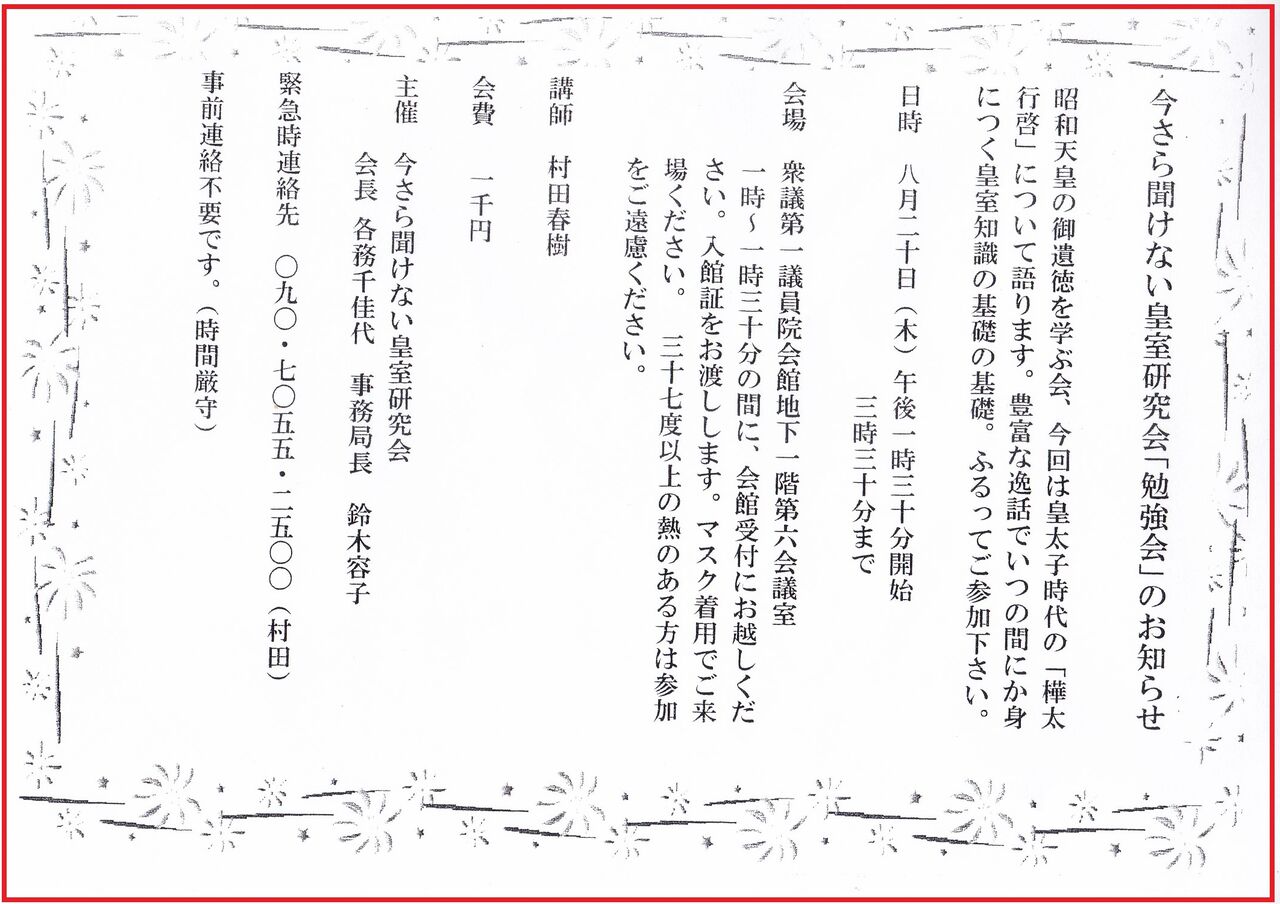 今さら聞けない皇室研究会「勉強会」のお知らせ
昭和天皇の御遺徳を学ぶ会、今回は皇太子時代の「樺太
行啓」について語ります。豊富な逸話でいつの間にか身
につく皇室知識の基礎の基礎。ふるってご参加下さい。
日時 八月二十日（木）午後一時三十分開始
三時三十分まで
会場 衆議第一議員院会館地下一階第六会議室
一時～一時三十分の間に、会館受付にお越しくだ
さい。入館証をお渡しします。マスク着用でご来
場ください。 三十七度以上の熱のある方は参加
をご遠慮ください。
講師 村田春樹
会費 一千円
主催 今さら聞けない皇室研究会
会長 各務千佳代 事務局長 鈴木容子
緊急時連絡先 〇九〇・七〇五五・二五〇〇（村田）
事前連絡不要です。（時間厳守）